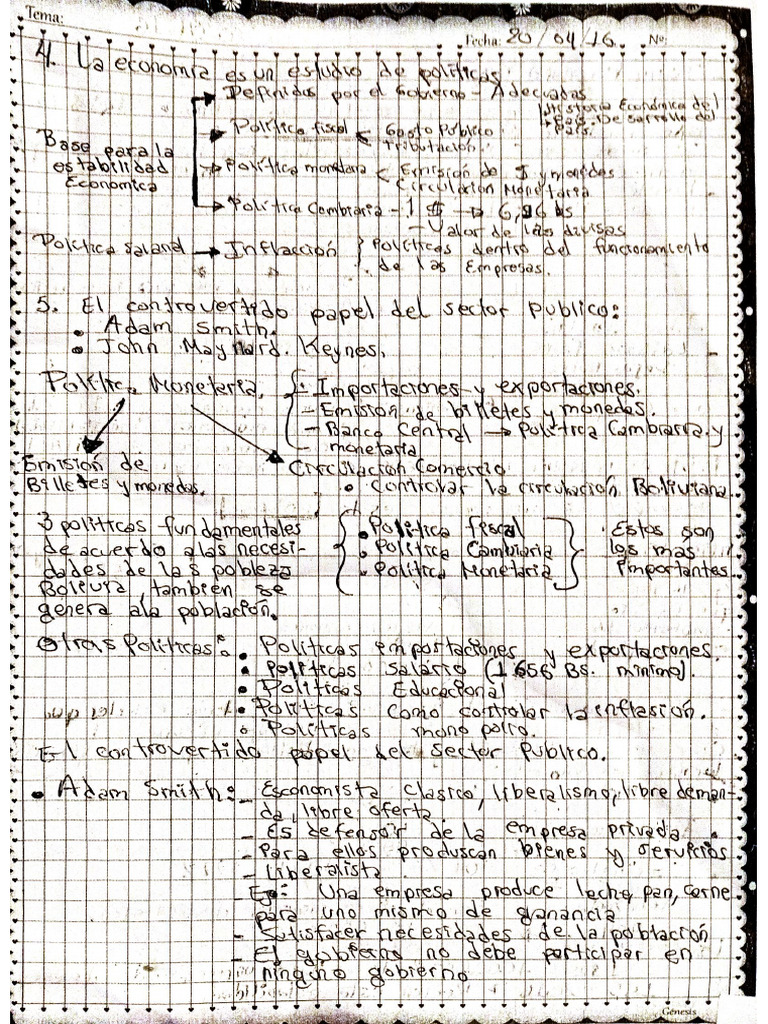 Tema:
Fecha: 20/04/16 No:
4. La economía es un estudio de políticas
Definidos por el Gobierno - Adecuadas
Historia Económica del
País. Desarrollo del
País.
Base para la
estabilidad
Economica
Política fiscal < Gasto Público
Tributación.
Política monetaria < Emisión de $ y monedes
Circulación Monetaria
Política Cambiaria - 1 $ → 6,96 bs
- Valor de las divisas
Política salarial → Inflacción } Políticas dentro del funcionamiento
de las Empresas.
5. El controvertido papel del sector publico:
• Adam Smith.
• John Maynard. Keynes.
Política Monetaria. { • Importaciones y exportaciones.
- Emisión de billetes y monedas.
- Banco Central → Política Cambiaria y
monetaria
Emisión de
Billetes y monedas.
Circulacion Comercio
• Controlar la circulación Boliviana
3 politicas fundamentales
de acuerdo a las necesi-
dades de las pobleza
Bolivia, tambien se
genera a la población.
• Política fiscal
• Política Cambiaria
• Política Monetaria
Estos son
los mas
importantes
Otras Politicas:
• Políticas emportaciones y exportaciones.
• Políticas Salário (1.656 Bs. minimo).
• Políticas Educacional
• Políticas como controlar la inflasión.
• Políticas mono polio.
El controvertido papel del Sector Publico.
• Adam Smith: - Esconomista clasico, liberalismo, libre deman-
da, libre oferta
- Es defensor de la empresa privada.
- Para ellos produscan bienes y servicios
- Liberalista
- Ej: Una empresa produce leche, pan, carne
para uno mismo de ganancia
- Satisfacer necesidades de la población
- El gobierno no debe participar en
ninguno gobierno
Génesis